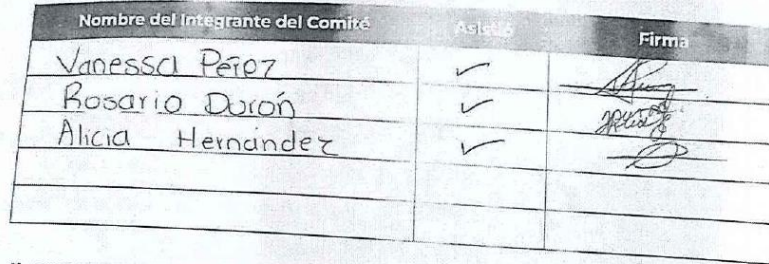 Nombre del Integrante del Comité Asistió Firma
Vanessa Pérez ✓
Rosario Durón ✓
Alicia Hernández ✓